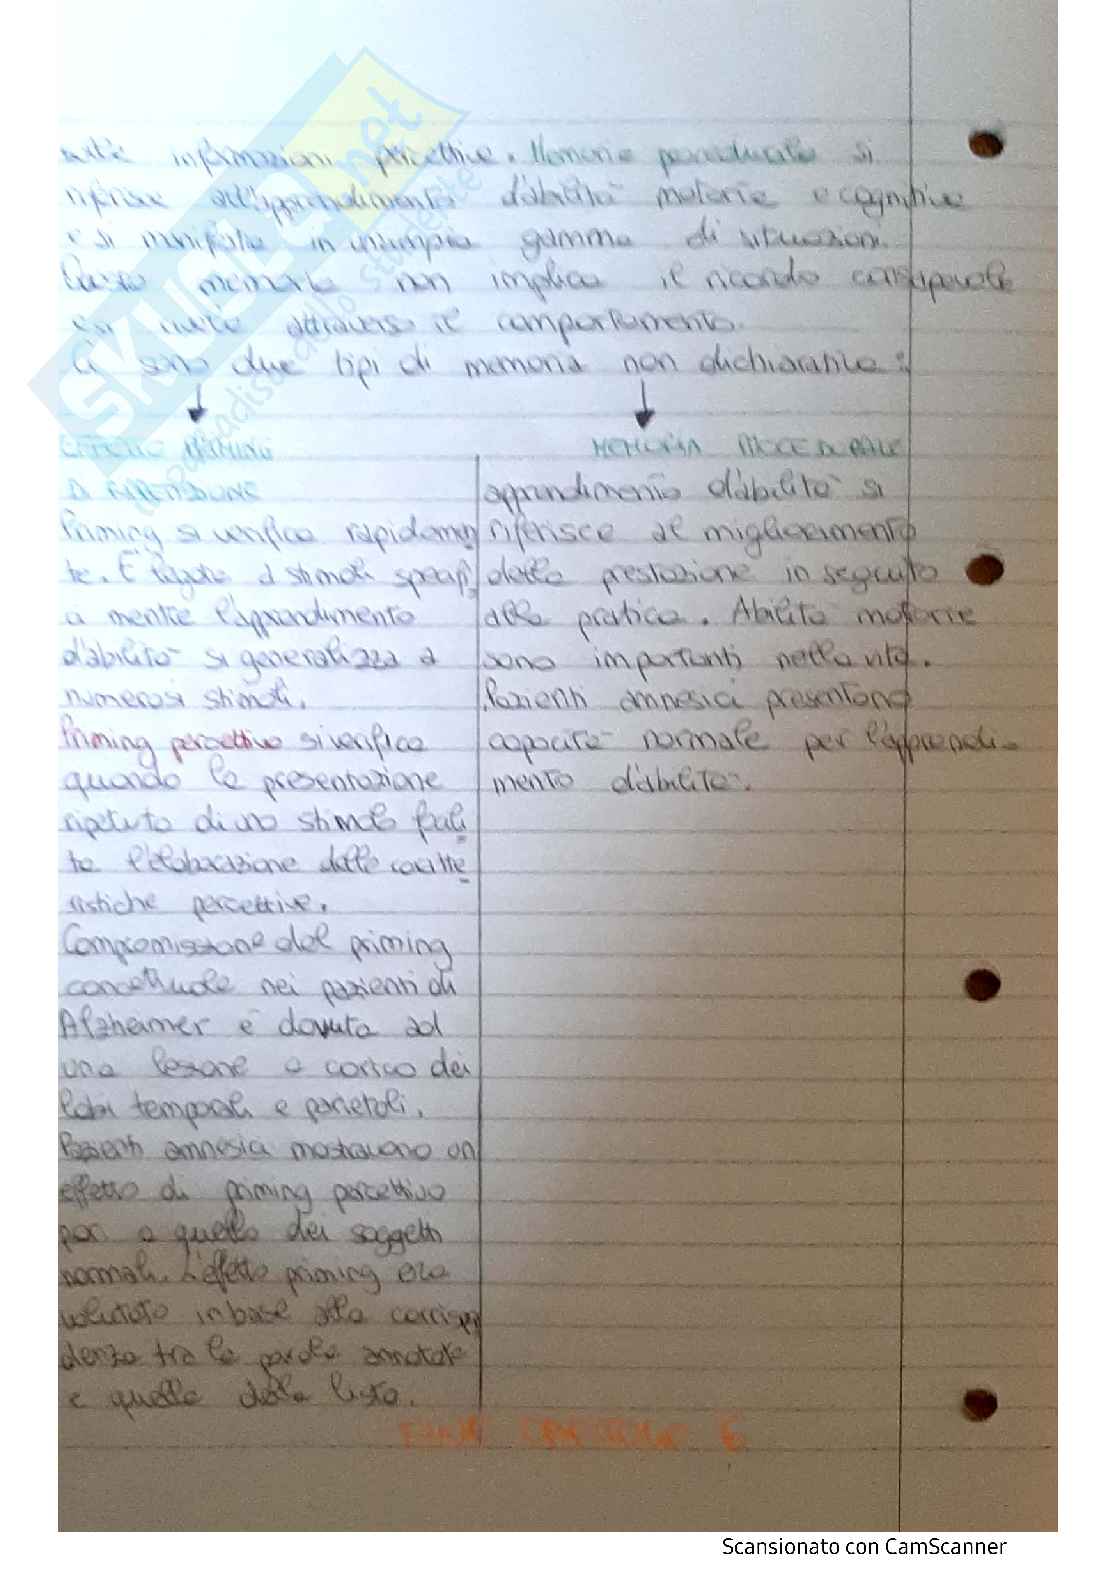 sulle informazioni percettive. Memoria procedurale si
riferisce all'apprendimento d'abilità motorie e cognitive
e si manifesta in un'ampia gamma di situazioni.
Questa memoria non implica il ricordo consapevole
e si rivela attraverso il comportamento.
Ci sono due tipi di memoria non dichiarativa:
EFFETTO PRIMING
O RIPETIZIONE
Priming si verifica rapidamen
te. È legato a stimoli specifi
ci mentre l'apprendimento
d'abilità si generalizza a
numerosi stimoli.
Priming percettivo si verifica
quando la presentazione
ripetuta di uno stimolo facili
ta l'elaborazione delle caratte
ristiche percettive.
Compromissione del priming
concettuale nei pazienti di
Alzheimer è dovuta ad
una lesione a carico dei
lobi temporali e parietali.
Pazienti amnesici mostravano un
effetto di priming percettivo
pari a quello dei soggetti
normali. L'effetto priming era
valutato in base alla corrispon
denza tra le parole annotate
e quelle della lista.
MEMORIA PROCEDURALE
apprendimento d'abilità si
riferisce al miglioramento
della prestazione in seguito
alla pratica. Abilità motorie
sono importanti nella vita.
Pazienti amnesici presentano
capacità normale per l'apprendi-
mento d'abilità.
FINE CAPITOLO 6
SKUOLA.net
il paradiso dello studente
Scansionato con CamScanner